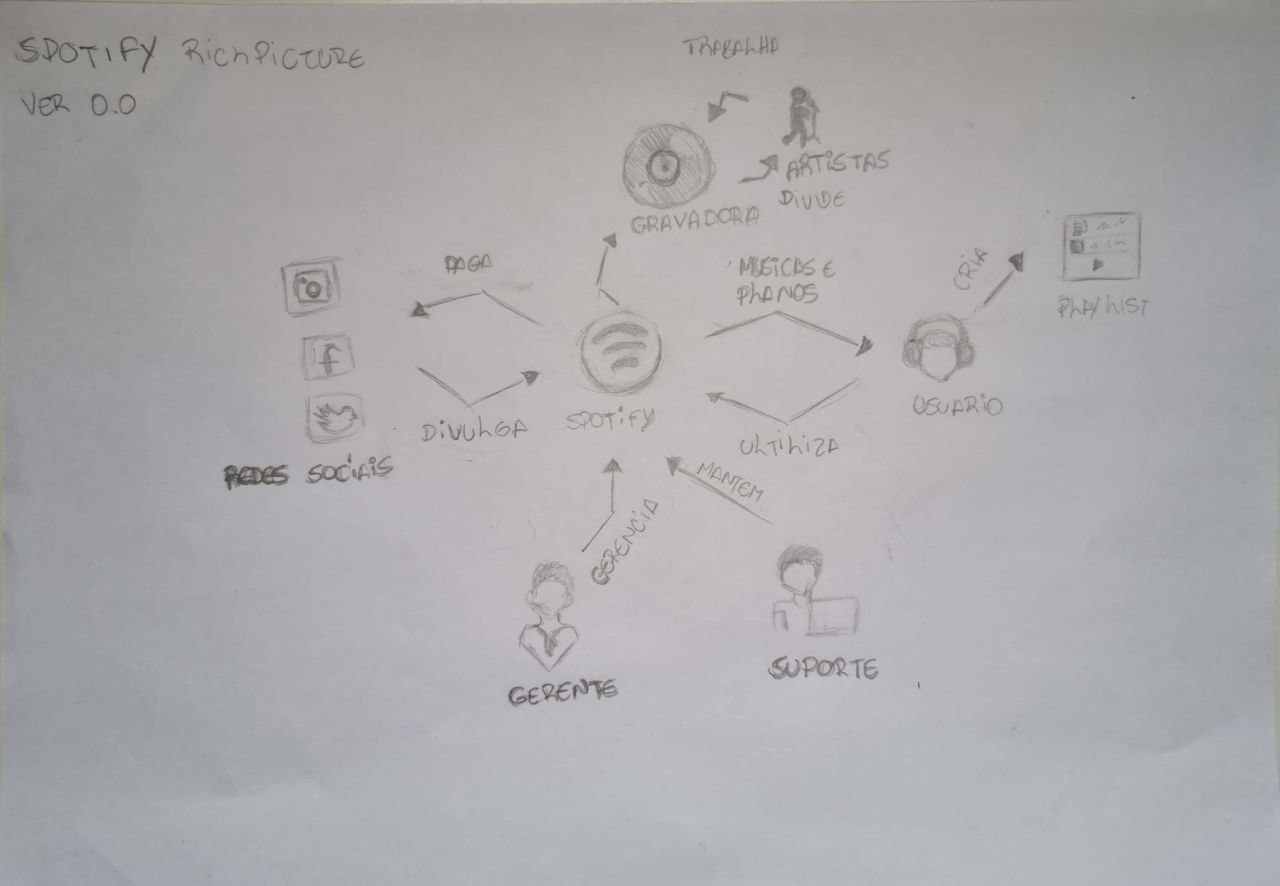 SPOTIFY RICHPICTURE
VER 0.0
TRABALHO
ARTISTAS
DIVIDE
GRAVADORA
PAGA
MUSICAS E
PLANOS
CRIA
PLAYLIST
USUARIO
SPOTIFY
DIVULGA
ULTILIZA
REDES SOCIAIS
MANTEM
GERENCIA
SUPORTE
GERENTE